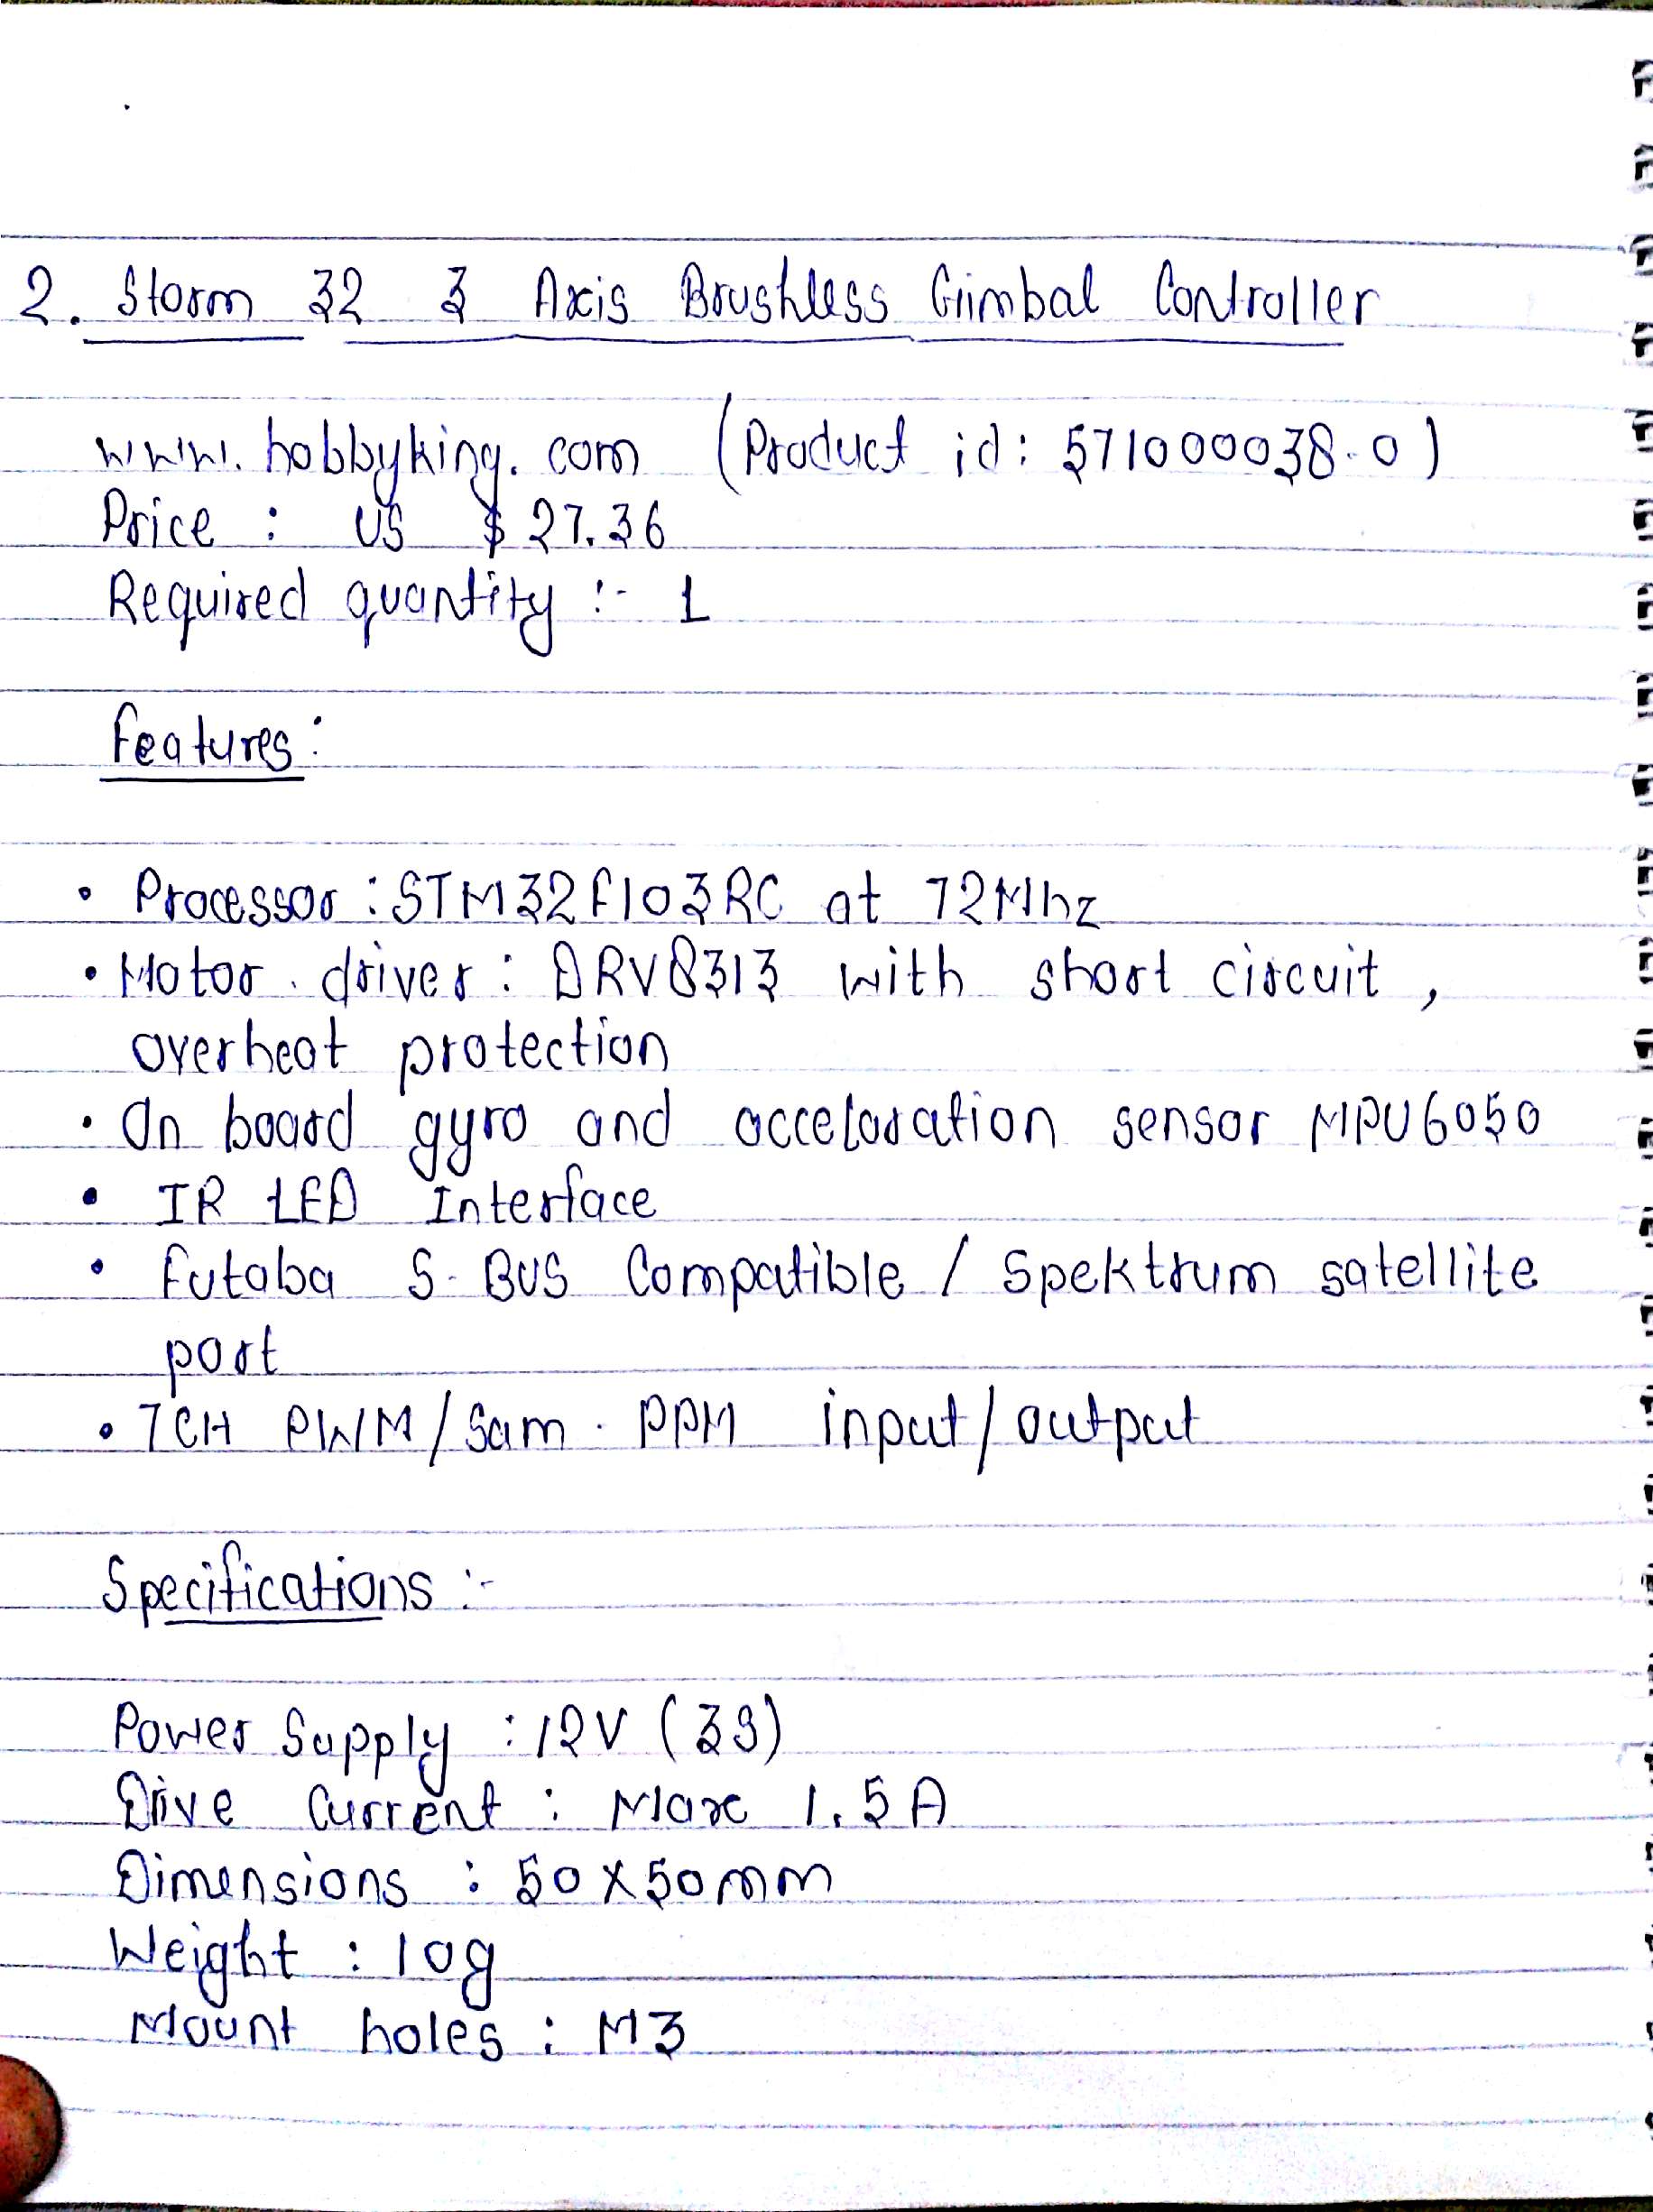 2. Storm 32 3 Axis Brushless Gimbal Controller
www.hobbyking.com (Product id: 571000038-0)
Price : US $27.36
Required quantity :- 1
Features:
• Processor : STM32F103RC at 72Mhz
• Motor driver : DRV8313 with short circuit,
overheat protection
• On board gyro and accelaration sensor MPU6050
• IR LED Interface
• Futaba S-BUS Compatible / Spektrum satellite
port
• 7CH PWM/Sum-PPM input/output
Specifications :-
Power Supply : 12V (3S)
Drive Current : Max 1.5A
Dimensions : 50X50mm
Weight : 10g
Mount holes : M3